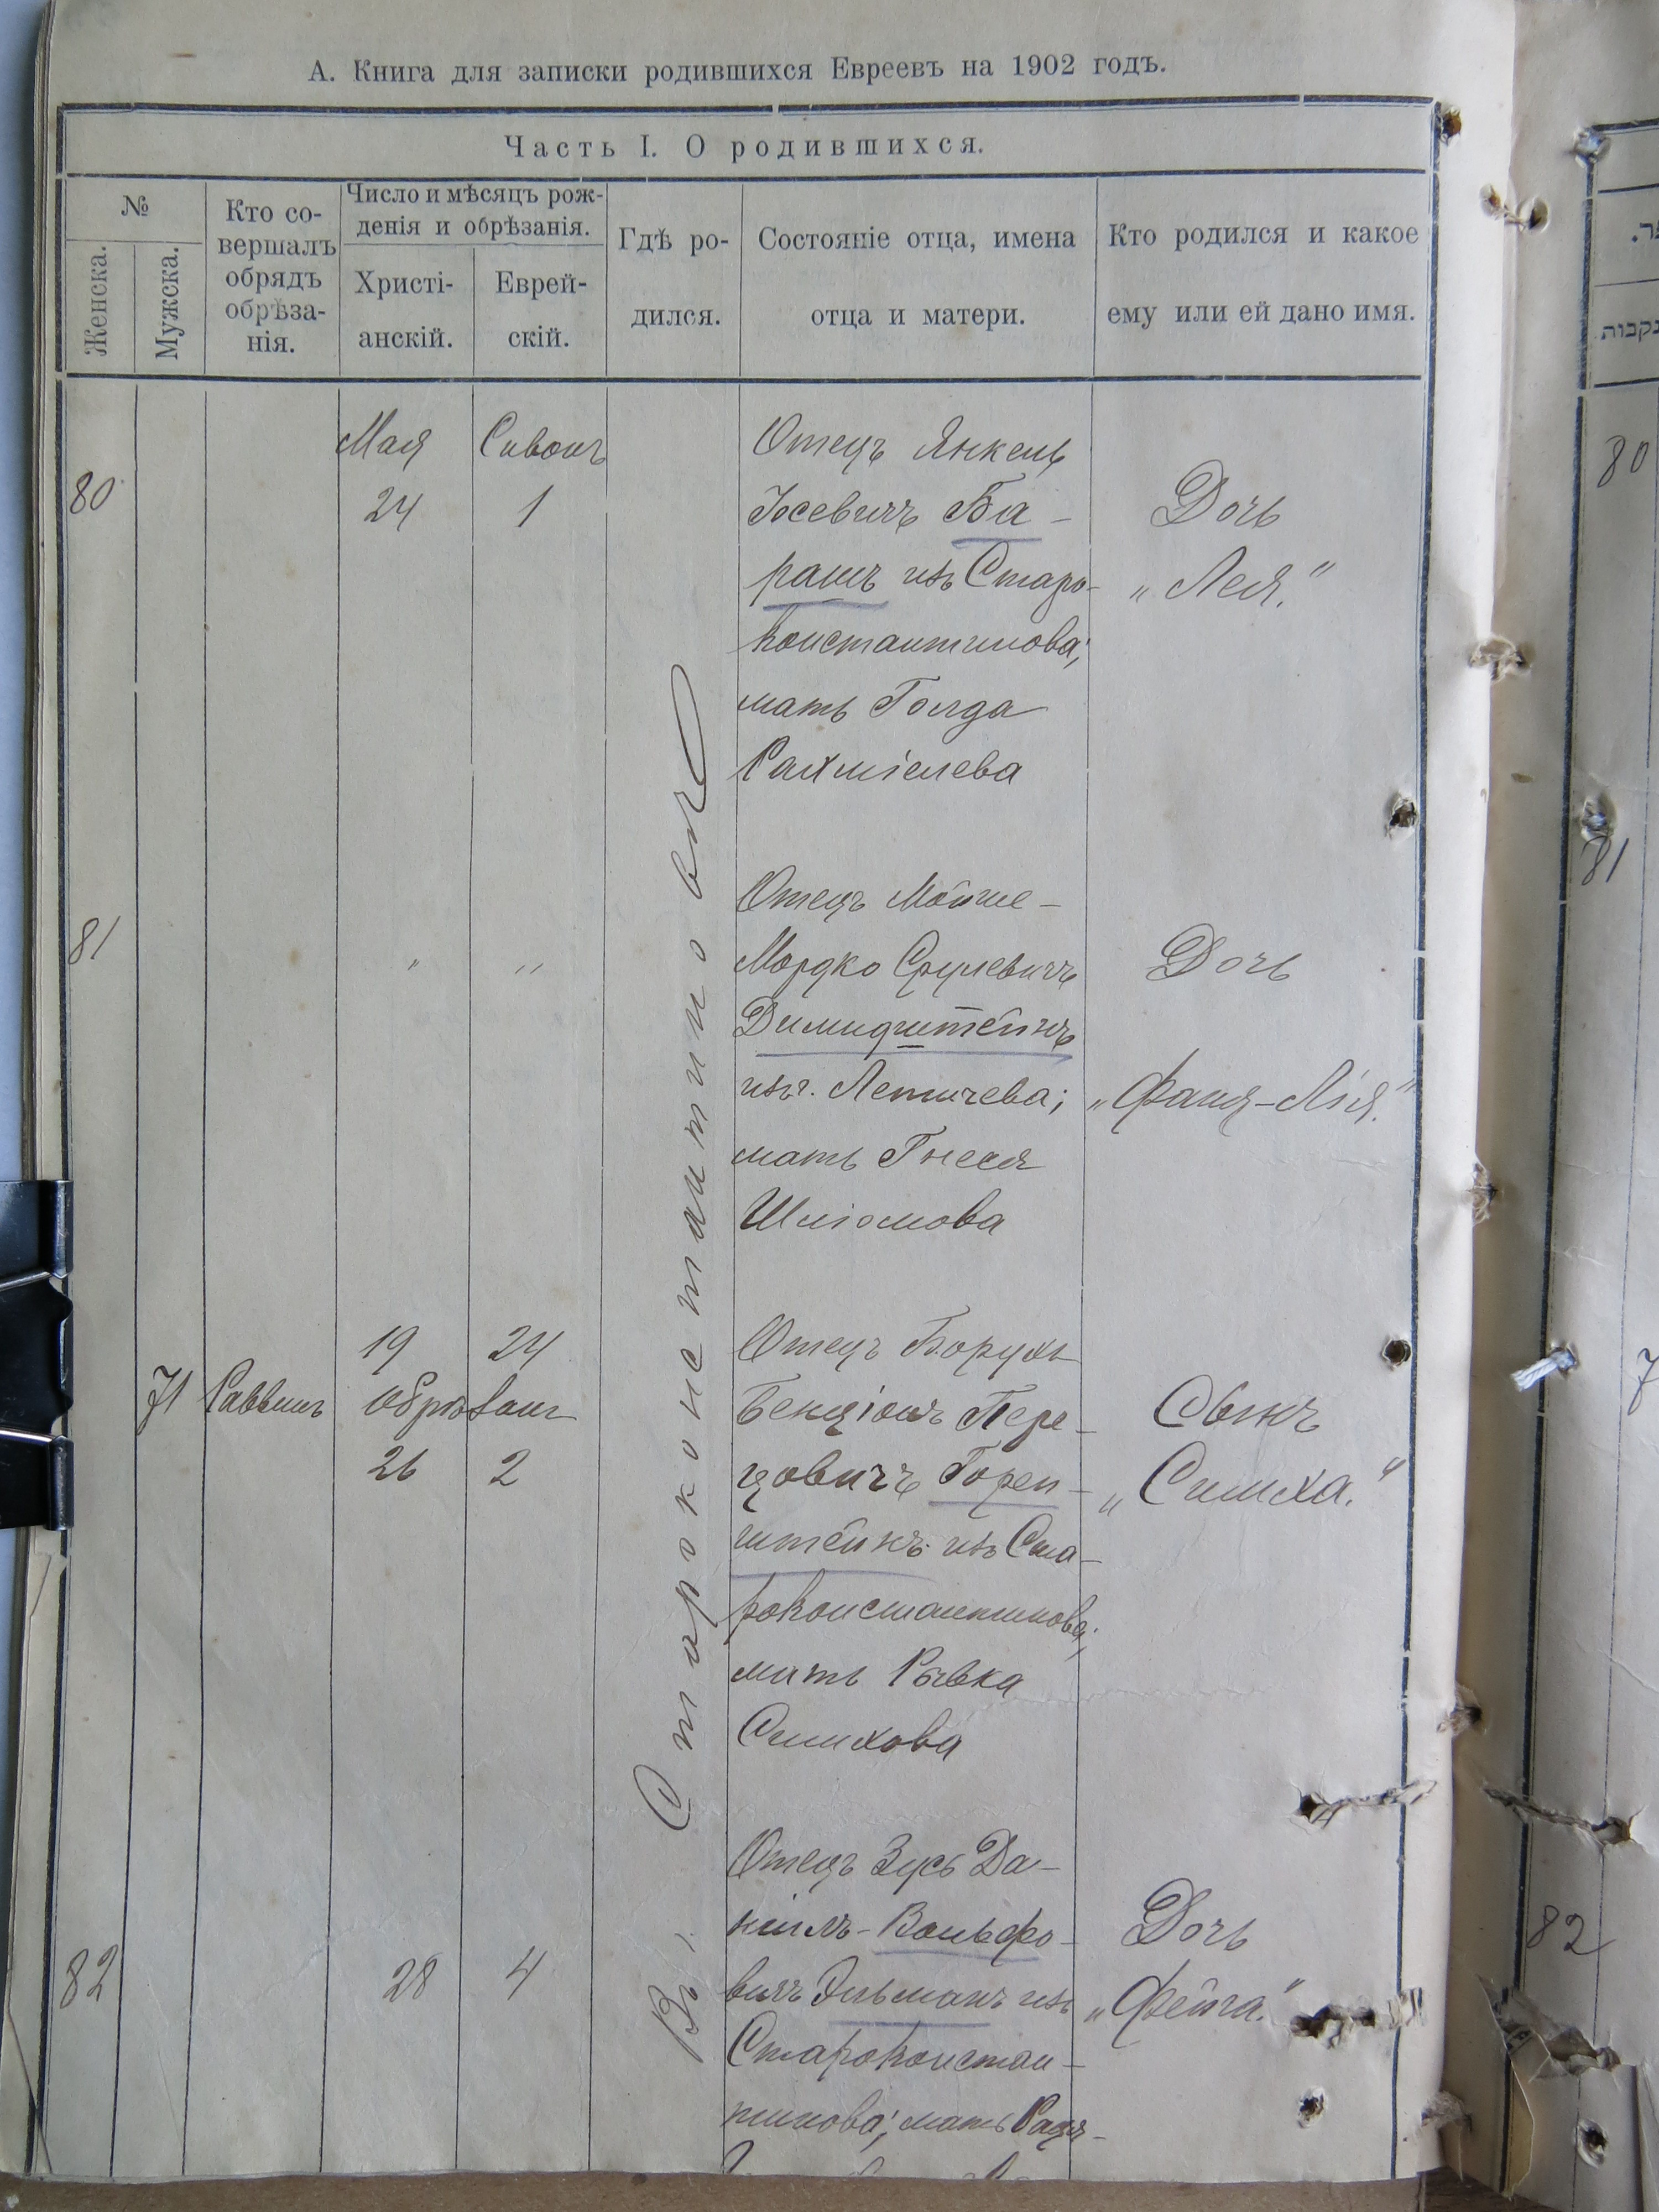 А. Книга для записки родившихся Евреевъ на 1902 годъ.
Часть I. О родившихся.
№
Женска.
Мужска.
Кто со-
вершалъ
обрядъ
обрѣза-
нія.
Число и мѣсяцъ рож-
денія и обрѣзанія.
Христі-
анскій.
Еврей-
скій.
Гдѣ ро-
дился.
Состояніе отца, имена
отца и матери.
Кто родился и какое
ему или ей дано имя.
Въ Староконстантиновѣ
80
Мая
24
Сивонъ
1
Отецъ Янкель
Іосевичъ Ба-
ранъ изъ Старо-
константинова;
мать Голда
Рахміелева
Дочь
„Лея."
81
" "
Отецъ Мойше-
Мордко Срулевичъ
Димидштейнъ
изъ г. Летичева;
мать Гнеся
Шліомова
Дочь
„Фаня-Лія."
71
Раввинъ
19 24
обрѣзан
26 2
Отецъ Борухъ
Бенціонъ Пере-
цовичъ Горен-
штейнъ изъ Ста-
роконстантинова;
мать Рывка
Симхова
Сынъ
„Симха."
82
28 4
Отецъ Зусь Да-
ніилъ-Вольфо-
вичъ Эльманъ изъ
Староконстан-
тинова; мать
Дочь
„Фейга."
נקבות
80
81
82